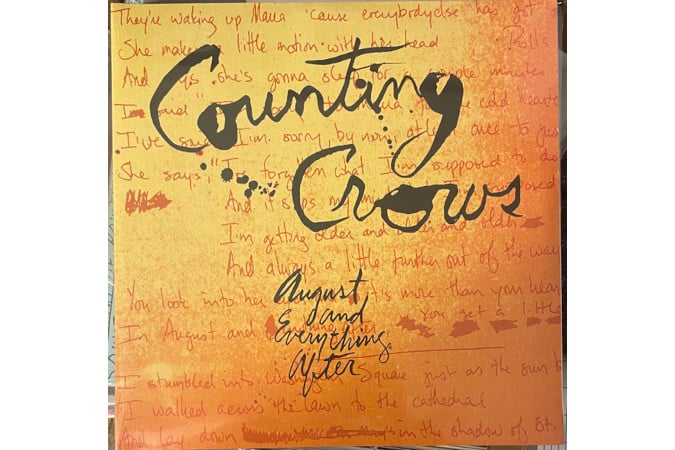 They're waking up Maria 'cause everybody else has got
She makes a little motion with her head
Rolls
And says she's gonna sleep for minutes
Counting
I'm said
the cold
I've said I'm sorry by now, at least once to just
She says, "I've forgotten what I'm supposed to do
Crows
And it slips my
I'm getting older and older and older
And always a little further out of the way
You look into her it's more than your
August
and
Everything
After
You get a little
In August and
I stumbled into Washington Square just as the sun
I walked across the lawn to the cathedral
And lay down in the shadow of St.